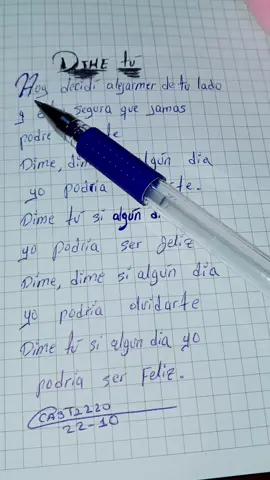 DIME tú
Hoy decidí alejarmer de tu lado
y segura que jamas
podre
Dime, algún dia
yo podría
Dime tú si algún
yo podría ser feliz
Dime, dime si algún dia
yo podria olvidarte
Dime tú si algún dia yo
podría ser Feliz.
CAST2220
22-10